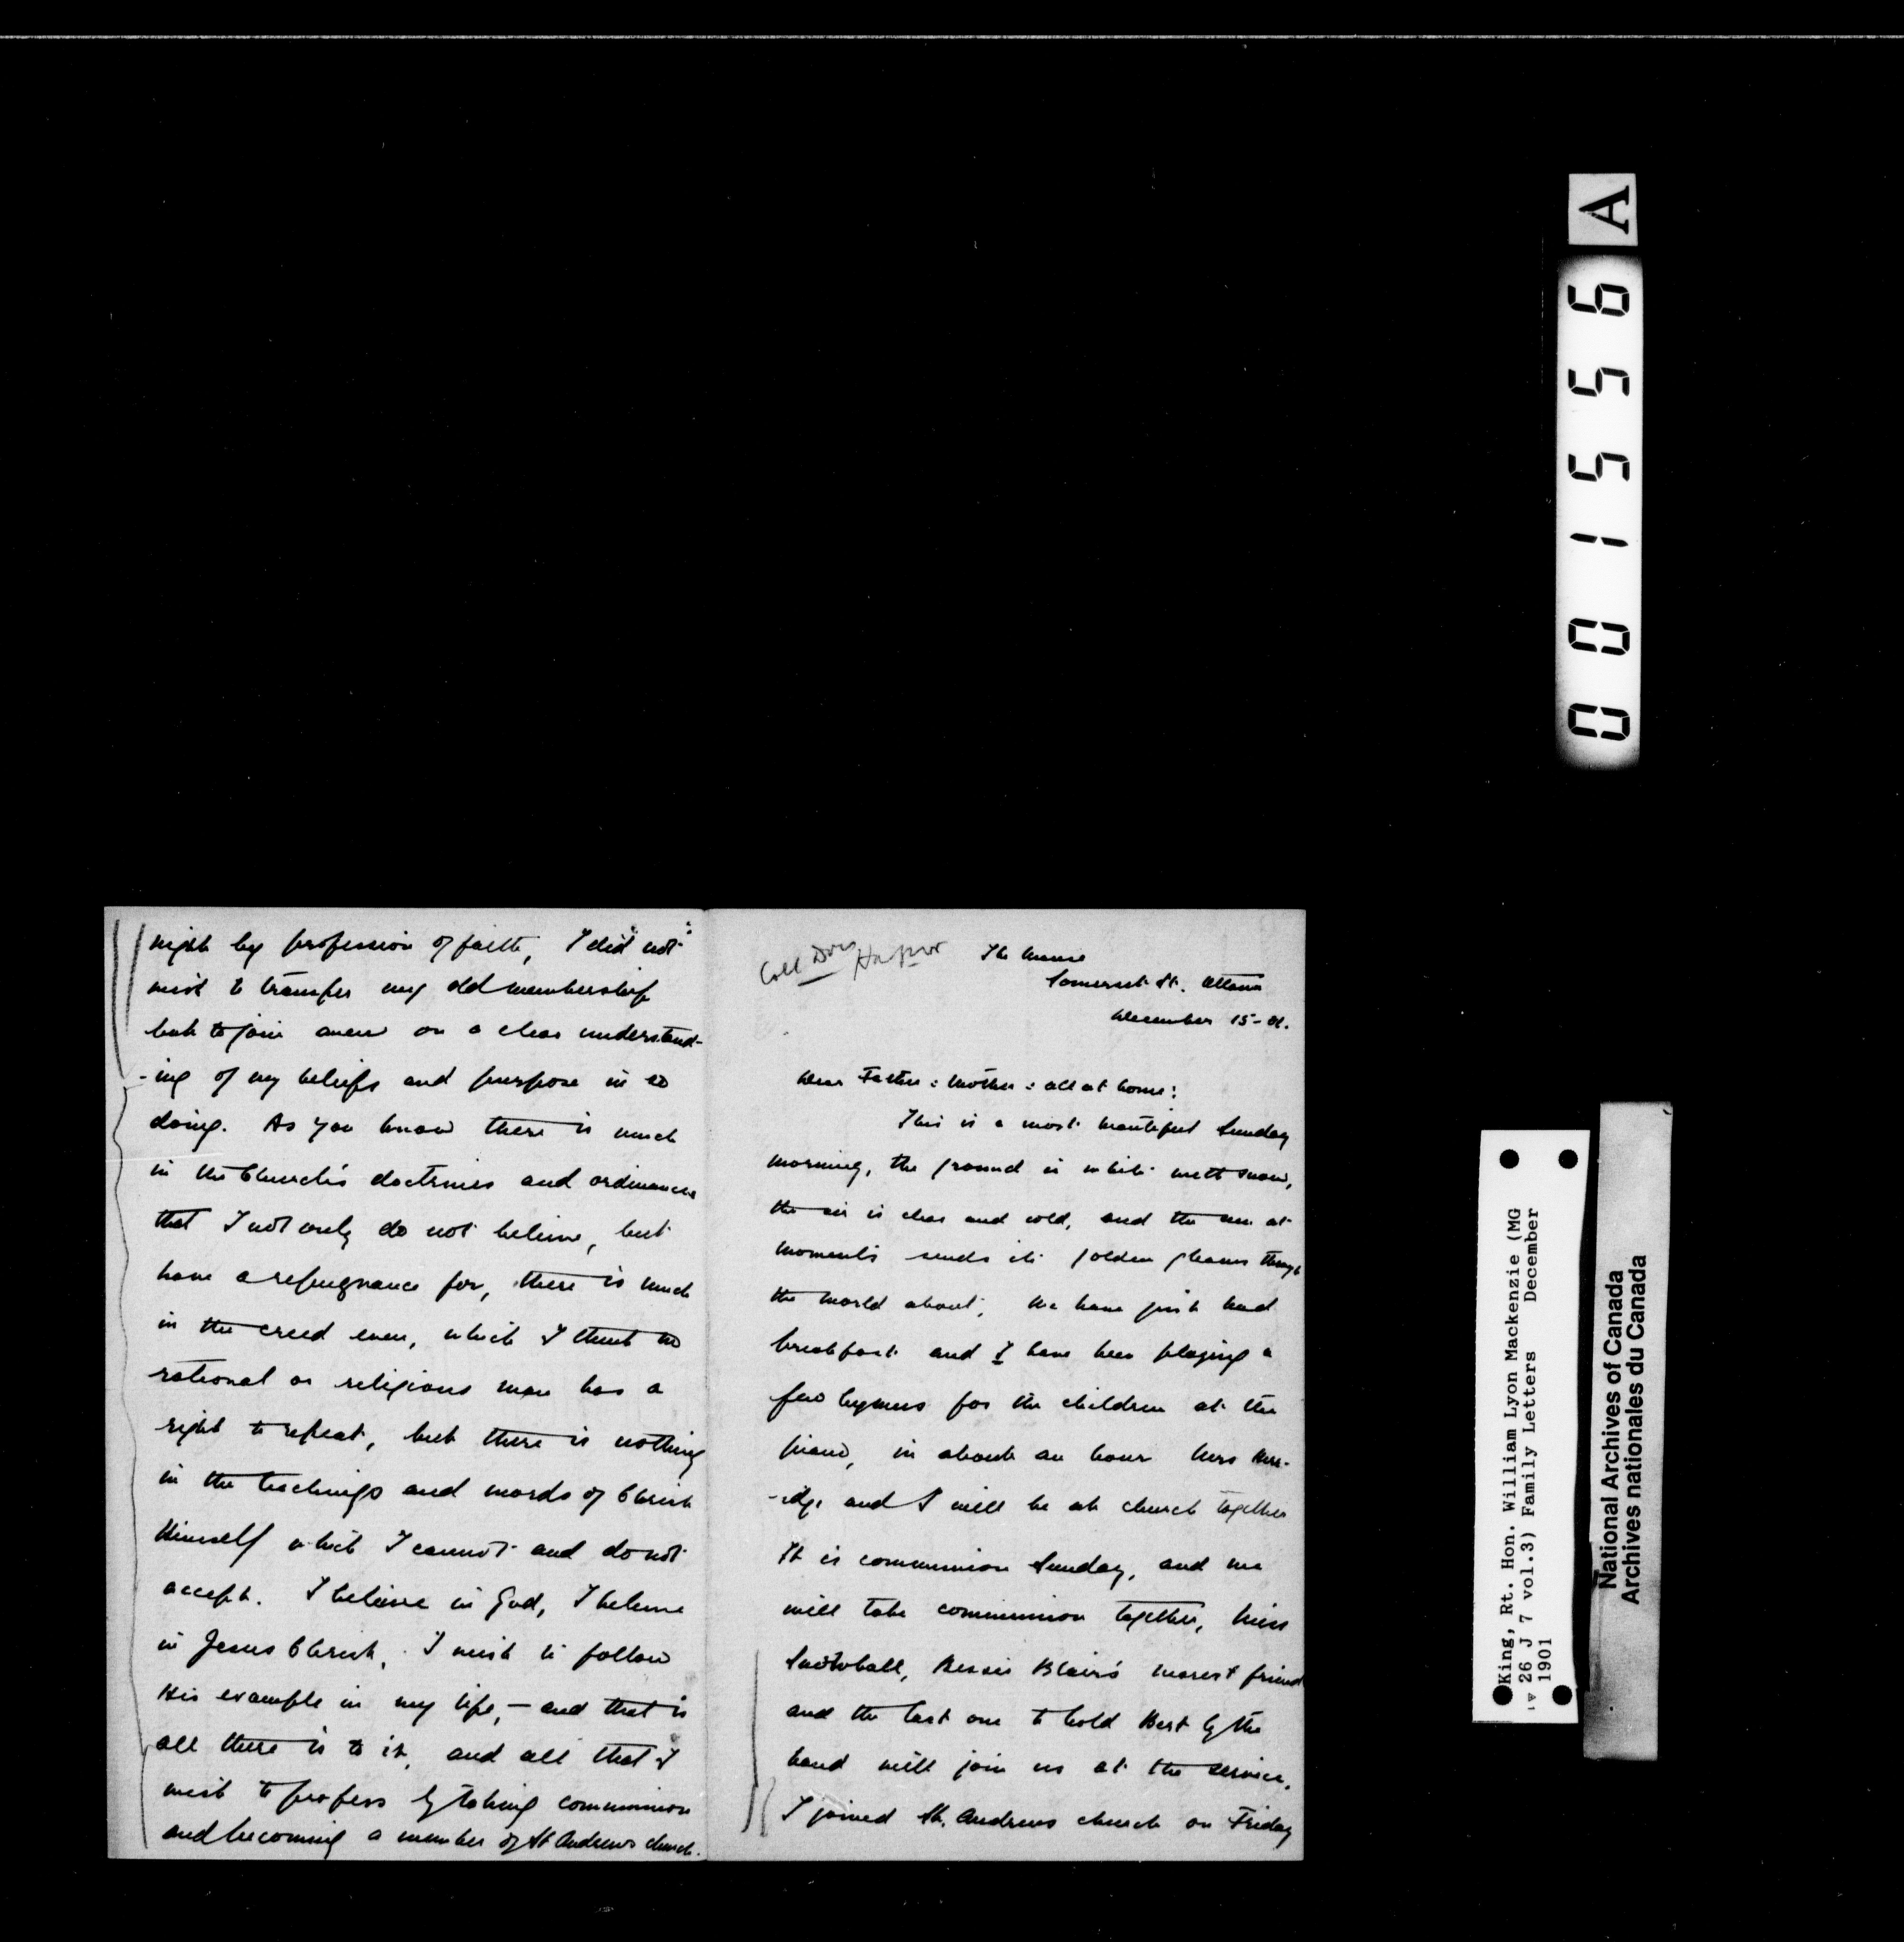 The Manse
Somerset St. Ottawa
December 15 - 01.
Dear Father : Mother : all at home :
This is a most beautiful Sunday
morning, the ground is white with snow,
the air is clear and cold, and the sun at
moments sends its golden gleams through
the world about, We have just had
breakfast and I have been playing a
few hymns for the children at the
piano, in about an hour Mrs Her-
-idge and I will be at church together
It is communion Sunday, and we
will take communion together, Miss
Snowball, Bessie Blair's nearest friend
and the last one to hold Bert by the
hand will join us at the service.
I joined St. Andrews church on Friday
night by profession of faith, I did not
wish to transfer my old membership
but to join anew on a clear understand-
-ing of my beliefs and purpose in so
doing. As you know there is much
in the Church's doctrines and ordinances
that I not only do not believe, but
have a repugnance for, there is much
in the creed even, which I think no
rational or religious man has a
right to repeat, but there is nothing
in the teachings and words of Christ
Himself which I cannot and do not
accept. I believe in God, I believe
in Jesus Christ, I wish to follow
His example in my life, - and that is
all there is to it, and all that I
wish to profess by taking communion
and becoming a member of St Andrews church.
A
001556
King, Rt. Hon. William Lyon Mackenzie (MG
26 J 7 vol.3) Family Letters December
1901
National Archives of Canada
Archives nationales du Canada